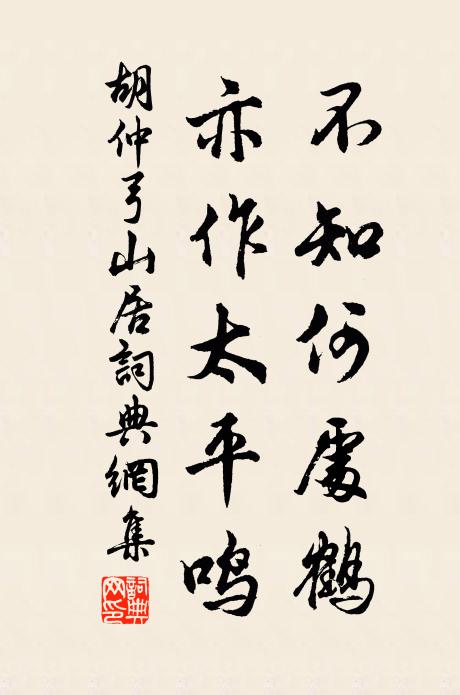 不知何處鶴
亦作太平鳴
胡仲弓山居詞典網集
詞典網印